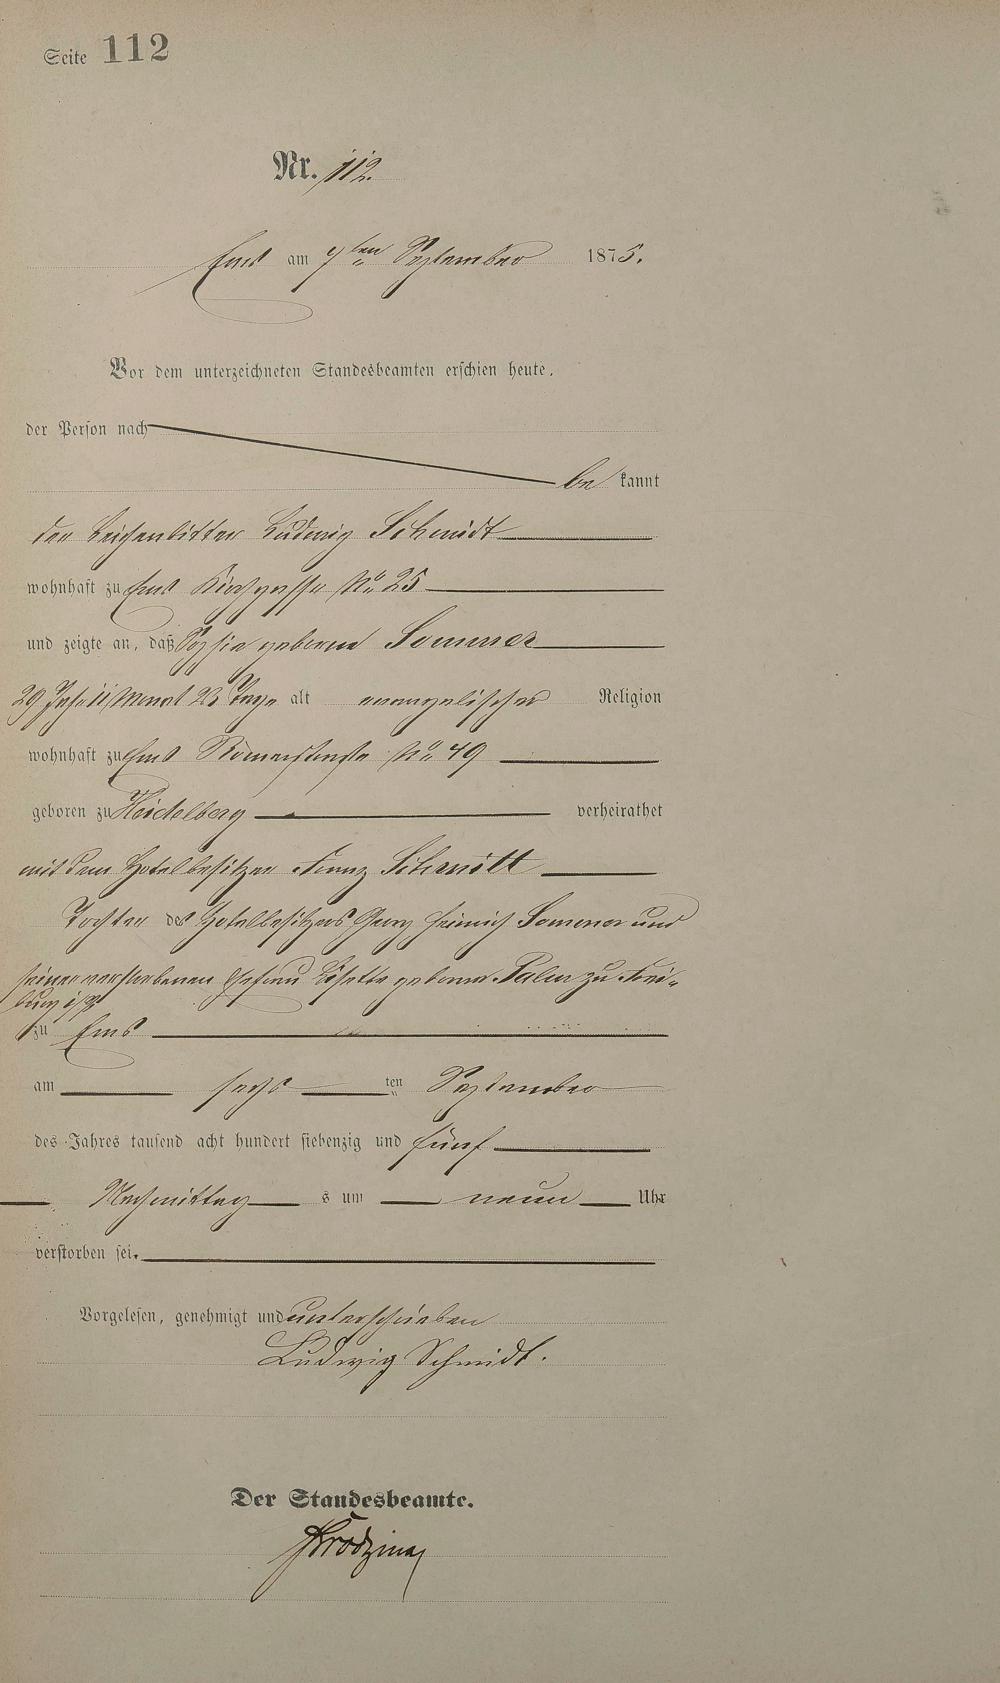 Seite 112
Nr. 112.
Ems am 7ten September 1875.
Vor dem unterzeichneten Standesbeamten erschien heute,
der Person nach
bekannt
der Leichenbitter Ludwig Schmidt
wohnhaft zu Ems Kirchgasse No 25
und zeigte an, daß Sophie geborene Sommer
29 Jahr 11 Monat 23 Tage alt evangelischer Religion
wohnhaft zu Ems Römerstraße No 49
geboren zu Heidelberg verheirathet
mit dem Hotelbesitzer Franz Schmitt
Tochter des Hotelbesitzers Georg Heinrich Sommer und
seiner verstorbenen Ehefrau Lisette geborne zu Frei-
burg
zu Ems
am sechsten September
des Jahres tausend acht hundert siebenzig und fünf
Nachmittags um neun Uhr
verstorben sei.
Vorgelesen, genehmigt und unterschrieben
Ludwig Schmidt.
Der Standesbeamte.